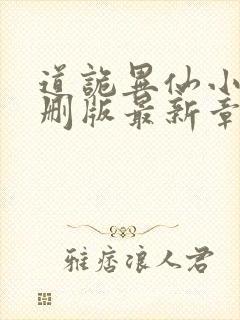 道诡异仙小
删版最新章
雅痞浪人君